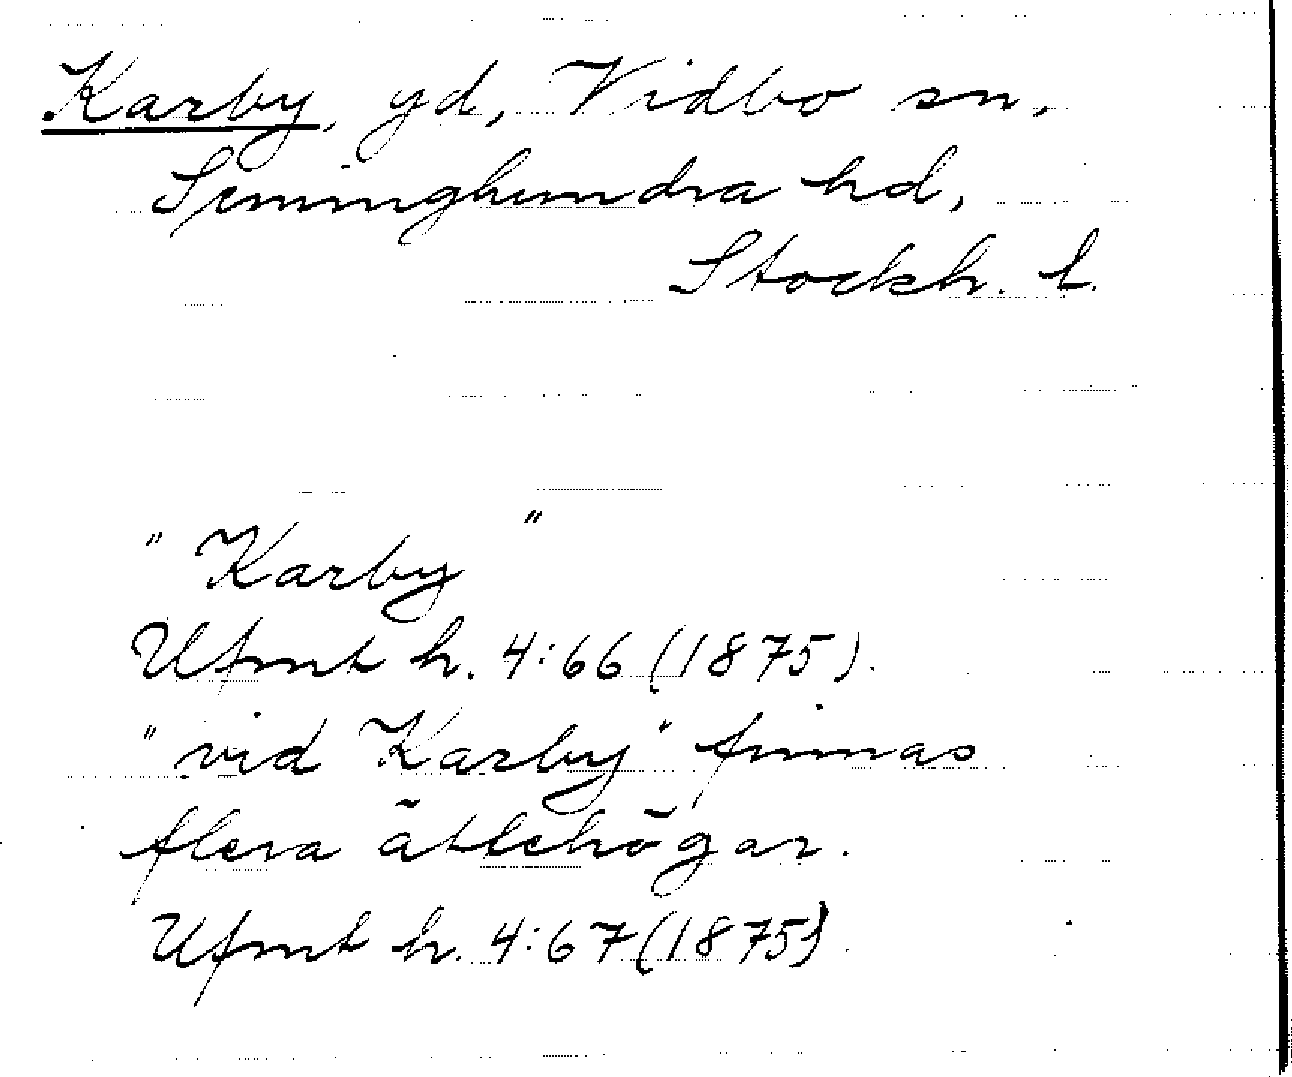 Karby, gd, Vidbo sn,
Seminghundra hd,
Stockh. l.
"Karby"
Ufmt h. 4:66 (1875).
"vid Karby" finnas
flera ättehögar.
Ufmt h. 4:67 (1875)